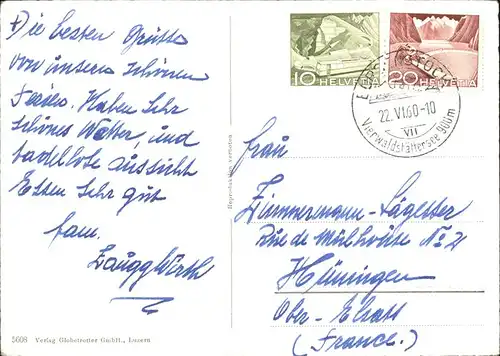 Die besten Grüsse
von unsern schönen
Ferien. Haben sehr
schönes Wetter, und
tadellose aussicht
Essen sehr gut
fam.
Zaugg Wirth
5608 Verlag Globetrotter GmbH., Luzern
Reproduktion verboten
10 HELVETIA
20 HELVETIA
22.VI.60-10
VII
Vierwaldstättersee 900m
Frau
Zimmermann-Lägesser
Rue de Mulhouse No 21
Hüningen
Ober-Elsass
(France.)